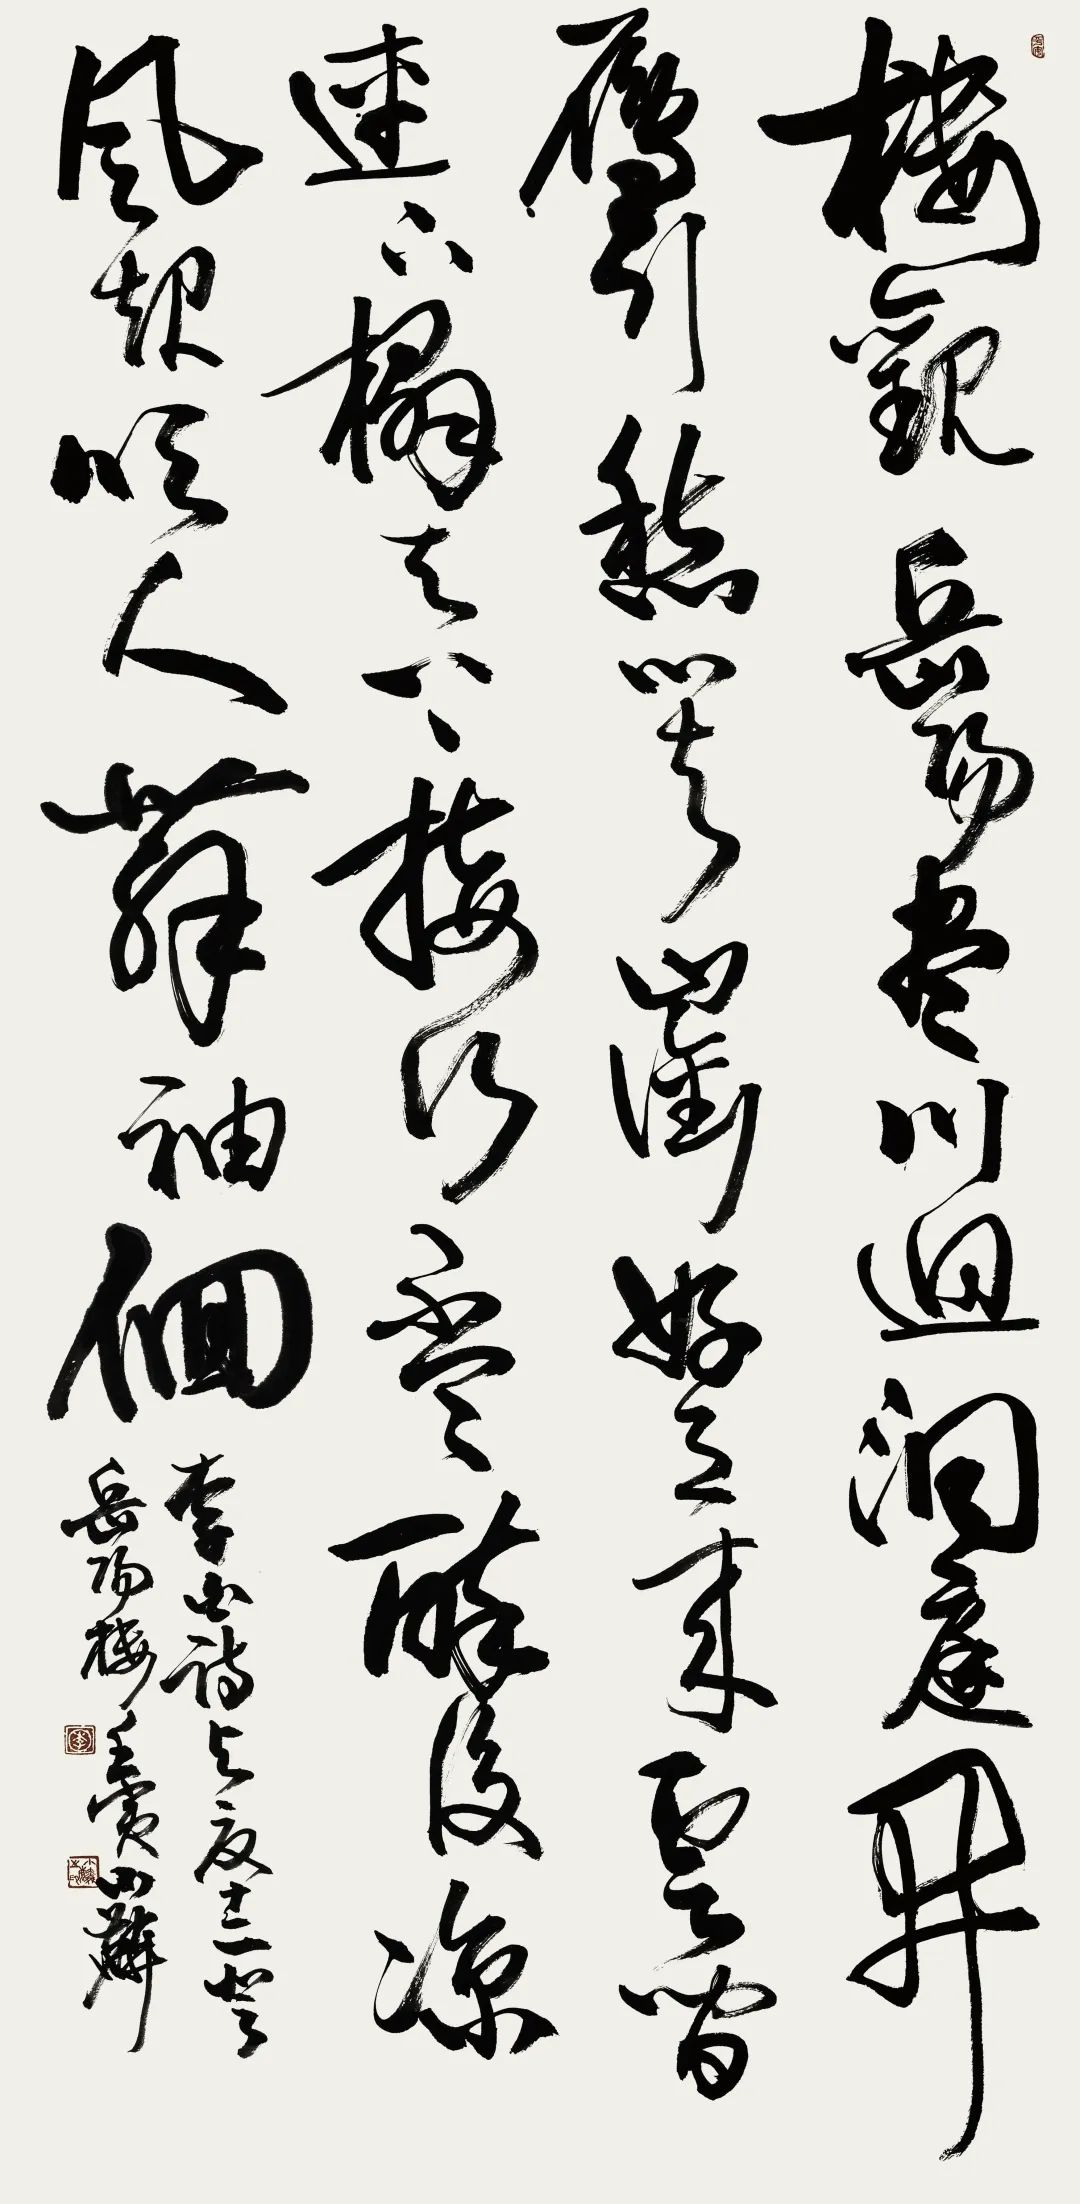 樓觀岳陽盡川迥洞庭開
鴈引愁心去山銜好月來雲間
連下榻天上接行盃醉後涼
風起吹人舞袖佪
李白詩与夏十二登
岳陽樓壬寅